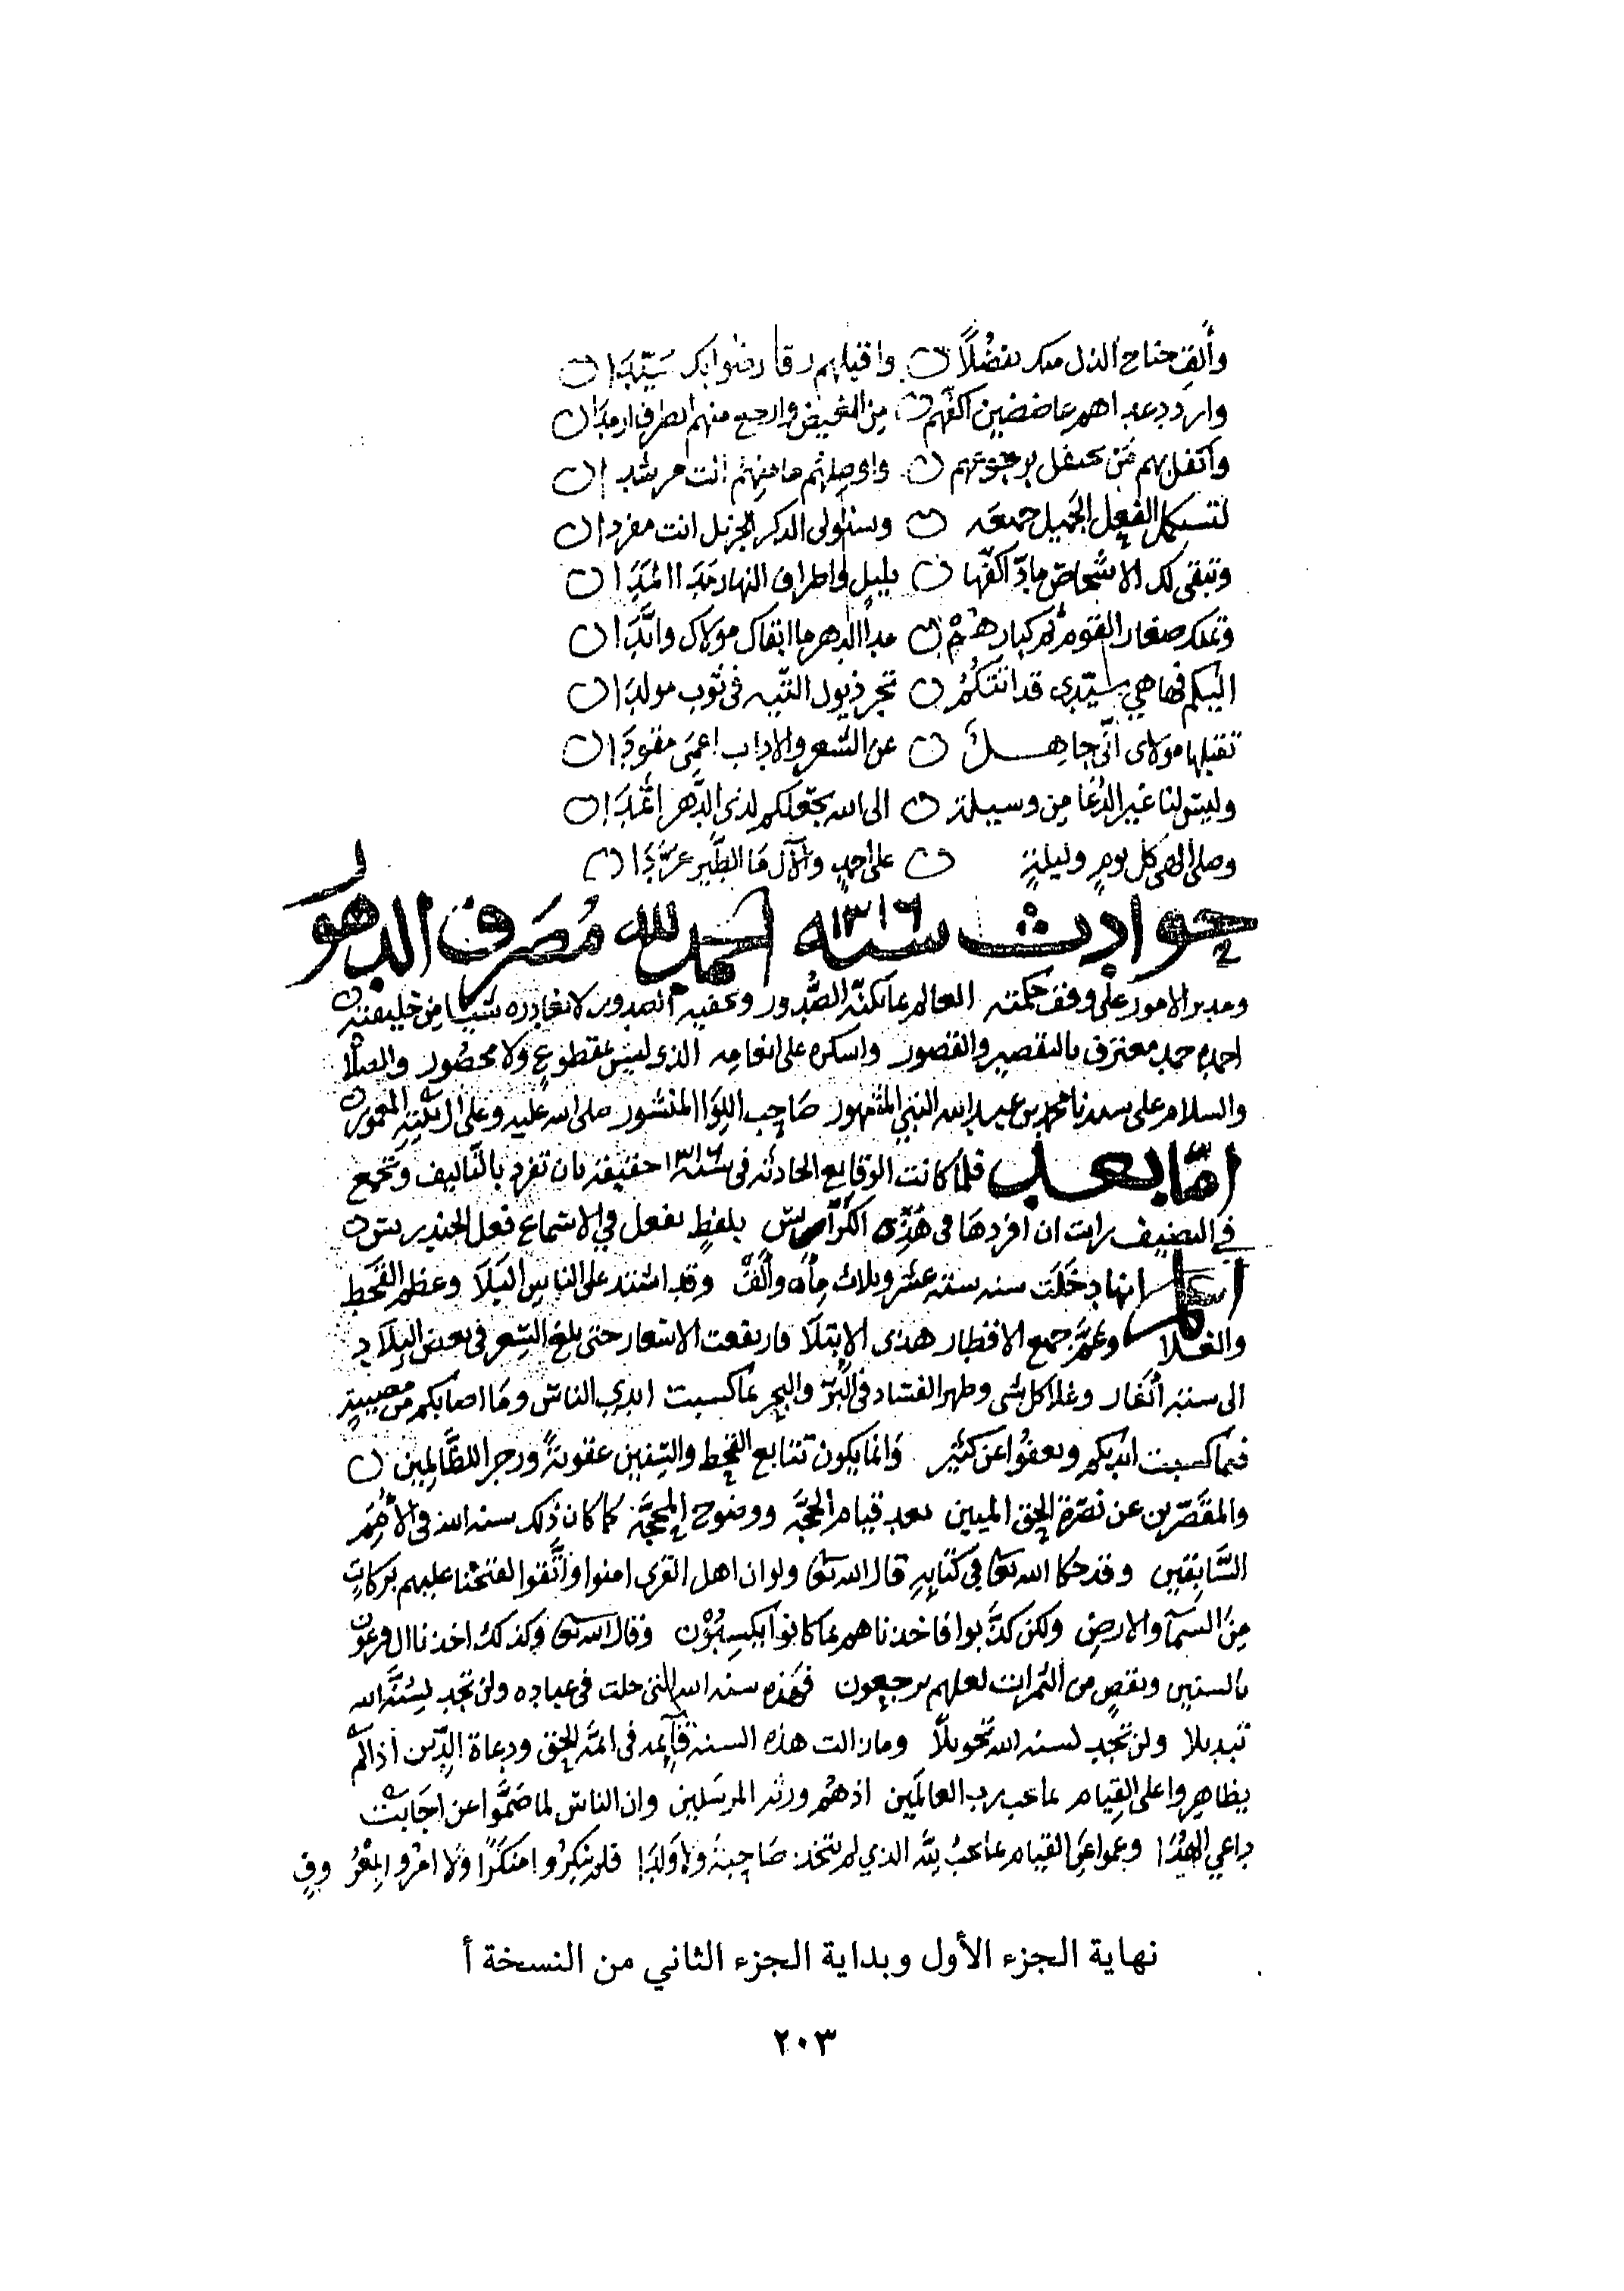 وألق جناح الذل منك تفضلًا واقبلهم رقا رضوا بك سيّدا
واردد عداهم عاضضين اكفهم من الغيض وارجع منهم الطرف ارمدا
بهم من برجوعهم انت مرشدا
لتستكمل الفعل الجميل جميعه وستولى الذكر الجزيل انت مفردا
وتبقى لك الاشخاص مادّ اكفّها بليل واطراف النهار مَدَا المَدَا
وتملك صغار القوم ثم كبارهم مدا الدهر ما ابقاك مولاك وابّدا
اليكم فها هي سيّدي قد اتتكمُ تجر ذيول التيه في ثوب مولدا
تقبلها مولاى انّى جاهل عن الشعر والاداب اعمى مقودا
وليس لنا غير الدُعا من وسيلة الى الله يجعلكم لذى الدهر اثمدا
وصلى الهى كل يومٍ وليلةٍ على احمدٍ والآل مَا الطير غرّدا
حوادث سنه ١٣١٦ الحمد لله مُصَرف الدهور
ومدبر الامور على وفق حكمته العالم بما تكنّه الصُّدور وتخفيه الصدور لا تغادره شيئا من خليقته
احمده حمد معترف بالتقصير والقصور واشكره على انعامه الذى ليس بمقطوعٍ ولا محصُور والصلاه
والسلام على سيدنا محمد بن عبد الله النبي المشهور صَاحِب اللِّوَا المنشور صلى الله عليه وعلى ال بيته
امّا بعد فلمّا كانت الوقايع الحادثه في سنه ١٣١٦ حقيقة بان تفرد بالتأليف وتجمع
في التصنيف رايت ان افردها في هذه الكرّاريس بلفظٍ يفعل في الاسماع فعل الخندريس
اعلم انها دخَلَت سنه سته عشر وثلاث مأه وألف وقد اشتد على الناس البَلَا وعظم القحط
والغلا وعمَّ جميع الاقطار هذى الابتلَا وارتفعت الاسعار حتى بلغ السِّعر في بعض البلاد
الى ستة أنفار وغلا كل شى وظهر الفساد في البرّ والبحر بما كسبت ايدي الناس ومَا اصابكم من مصيبةٍ
فبما كسبت ايديكم ويعفُوا عن كثير وَانما يكون تتابع القحط والسّنين عقوبةً وزجر اللظّالمين
والمقصّرين عن نصرة الحق المبين بعد قيام الحجّه ووضوح المحجَّة كما كان ذلك سنه الله في الأُمم
السَّابقين وقد حكا الله تعالى في كتابه قال الله تعالى ولو ان اهل القرى امنوا واتّقوا لفتحنا عليهم بركاتٍ
مِنَ السَّمآ والارض ولكن كذّبوا فاخذناهم بما كانوا يكسِبُوْن وقال الله تعالى وكذلك اخذنا ال فرعون
بالسنين ونقصٍ من الثمرات لعلهم يرجعون فهَذه سنه الله التي خلت في عباده ولن تجد لِسُنَّة الله
تبديلا ولن تجد لسنه الله تحويلاً وما زالت هذه السنة قآيمه في ائمة الحق ودعاة الدِّين اذا لم
يظاهروا على القيام بما يجب رب العالمين اذهم ورثه المرسَلين وان الناس لما صَمّوا عن اجَابت
داعي الهُدَا وعموا عن القيام بما يجبُ لِلَّه الذي لم يتخذ صَاحِبَةً ولا وَلَدَا فلم ينكِرُوا منكرًا ولا امرُوا بمعْرُ وفٍ
نهاية الجزء الأول وبداية الجزء الثاني من النسخة أ
٢٠٣